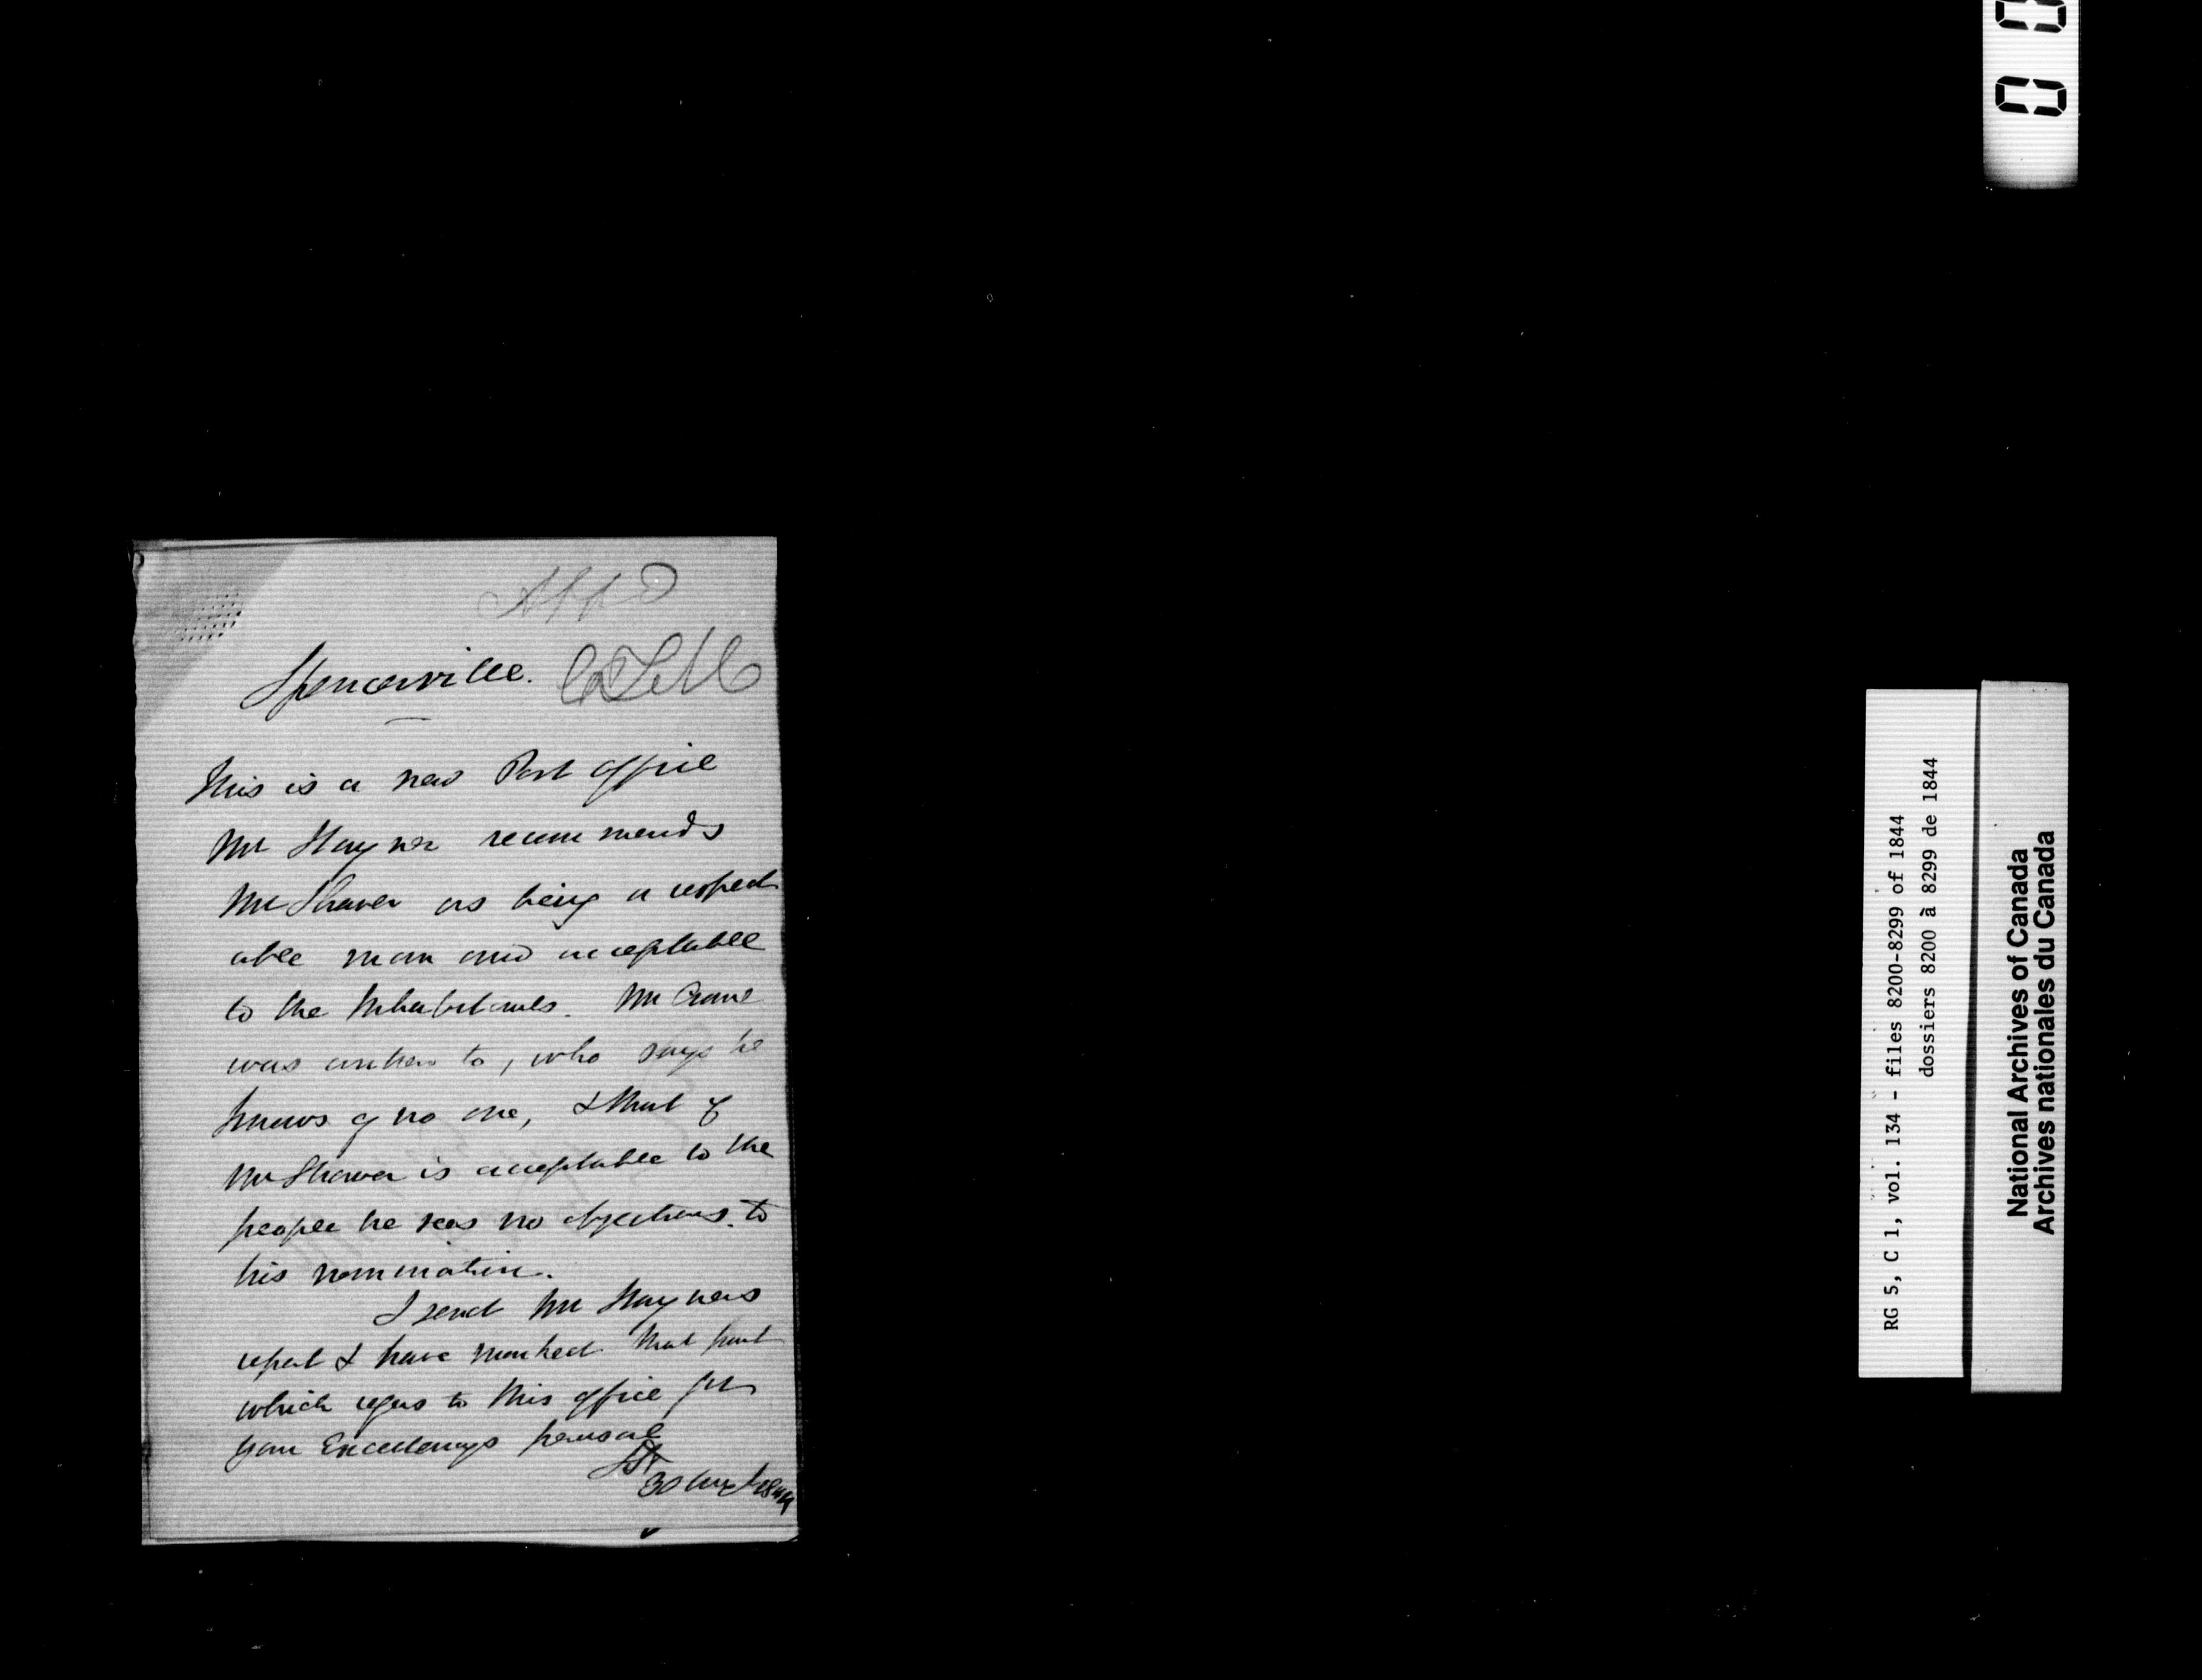 Appd
Spencerville. C.T.M
This is a new Post Office
Mr Stayner recommends
Mr Shaver as being a respect
able man and acceptable
to the Inhabitants. Mr Crane
was written to, who says he
knows of no one, & that if
Mr Shaver is acceptable to the
people he sees no objections to
his nomination.
I send Mr Stayners
report & have marked that part
which refers to this office for
your Excellencys perusal
30 Augt 1844
RG 5, C 1, vol. 134 - files 8200-8299 of 1844
dossiers 8200 à 8299 de 1844
National Archives of Canada
Archives nationales du Canada